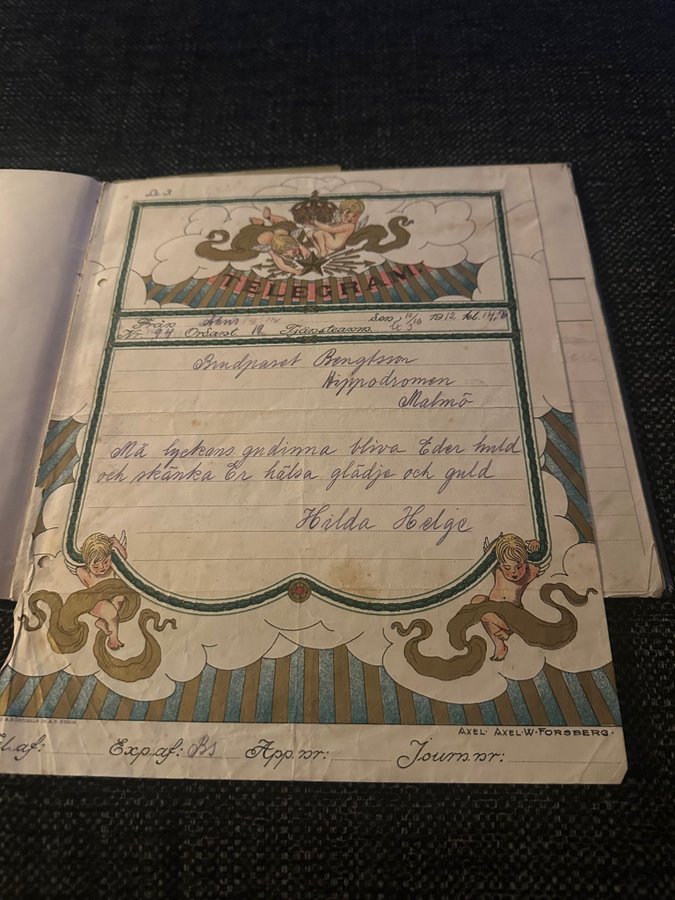 Lx 3
TELEGRAM
Från Åhus den 10/10 1912 kl.
Nr. 94 Ordant. 19 Tjänsteanm. Lx 3
Brudparet Bengtsson
Hippodromen
Malmö
Må lyckans gudinna bliva Eder huld
och skänka Er hälsa glädje och guld
Hilda Helge
AXEL· AXEL·W·FORSBERG·
Exp.af: Bs App.nr: Journ.nr: